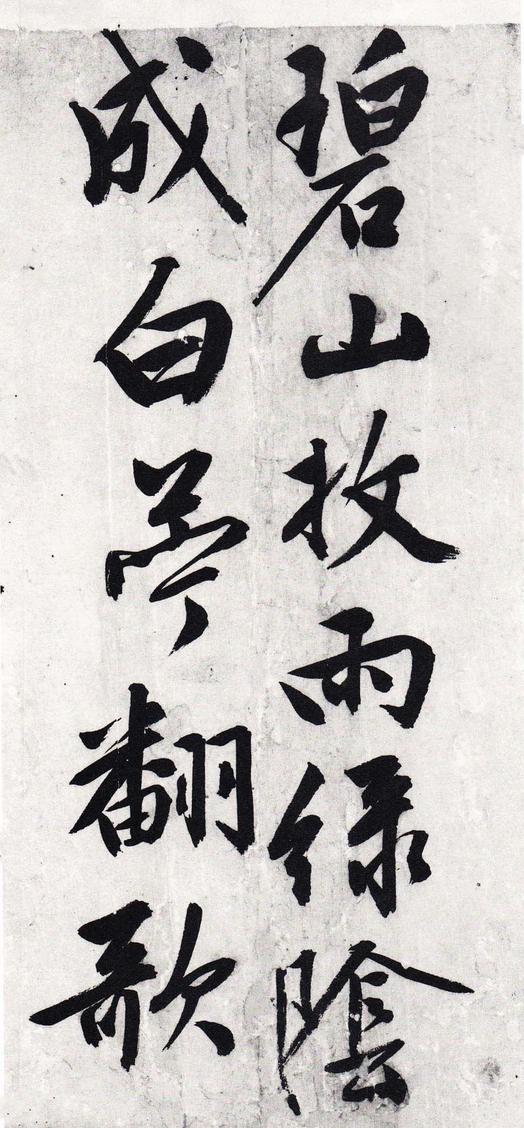 碧山收雨緑陰
成白苧翻歌